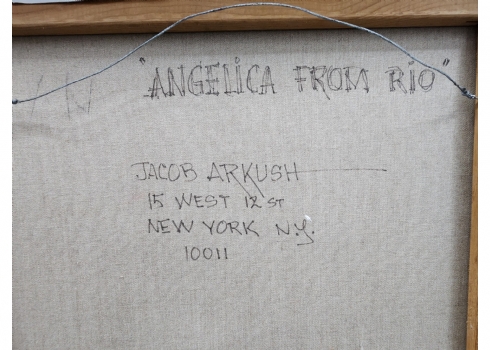 "ANGELICA FROM RIO"
JACOB ARKUSH
15 WEST 12 ST
NEW YORK N.Y.
10011